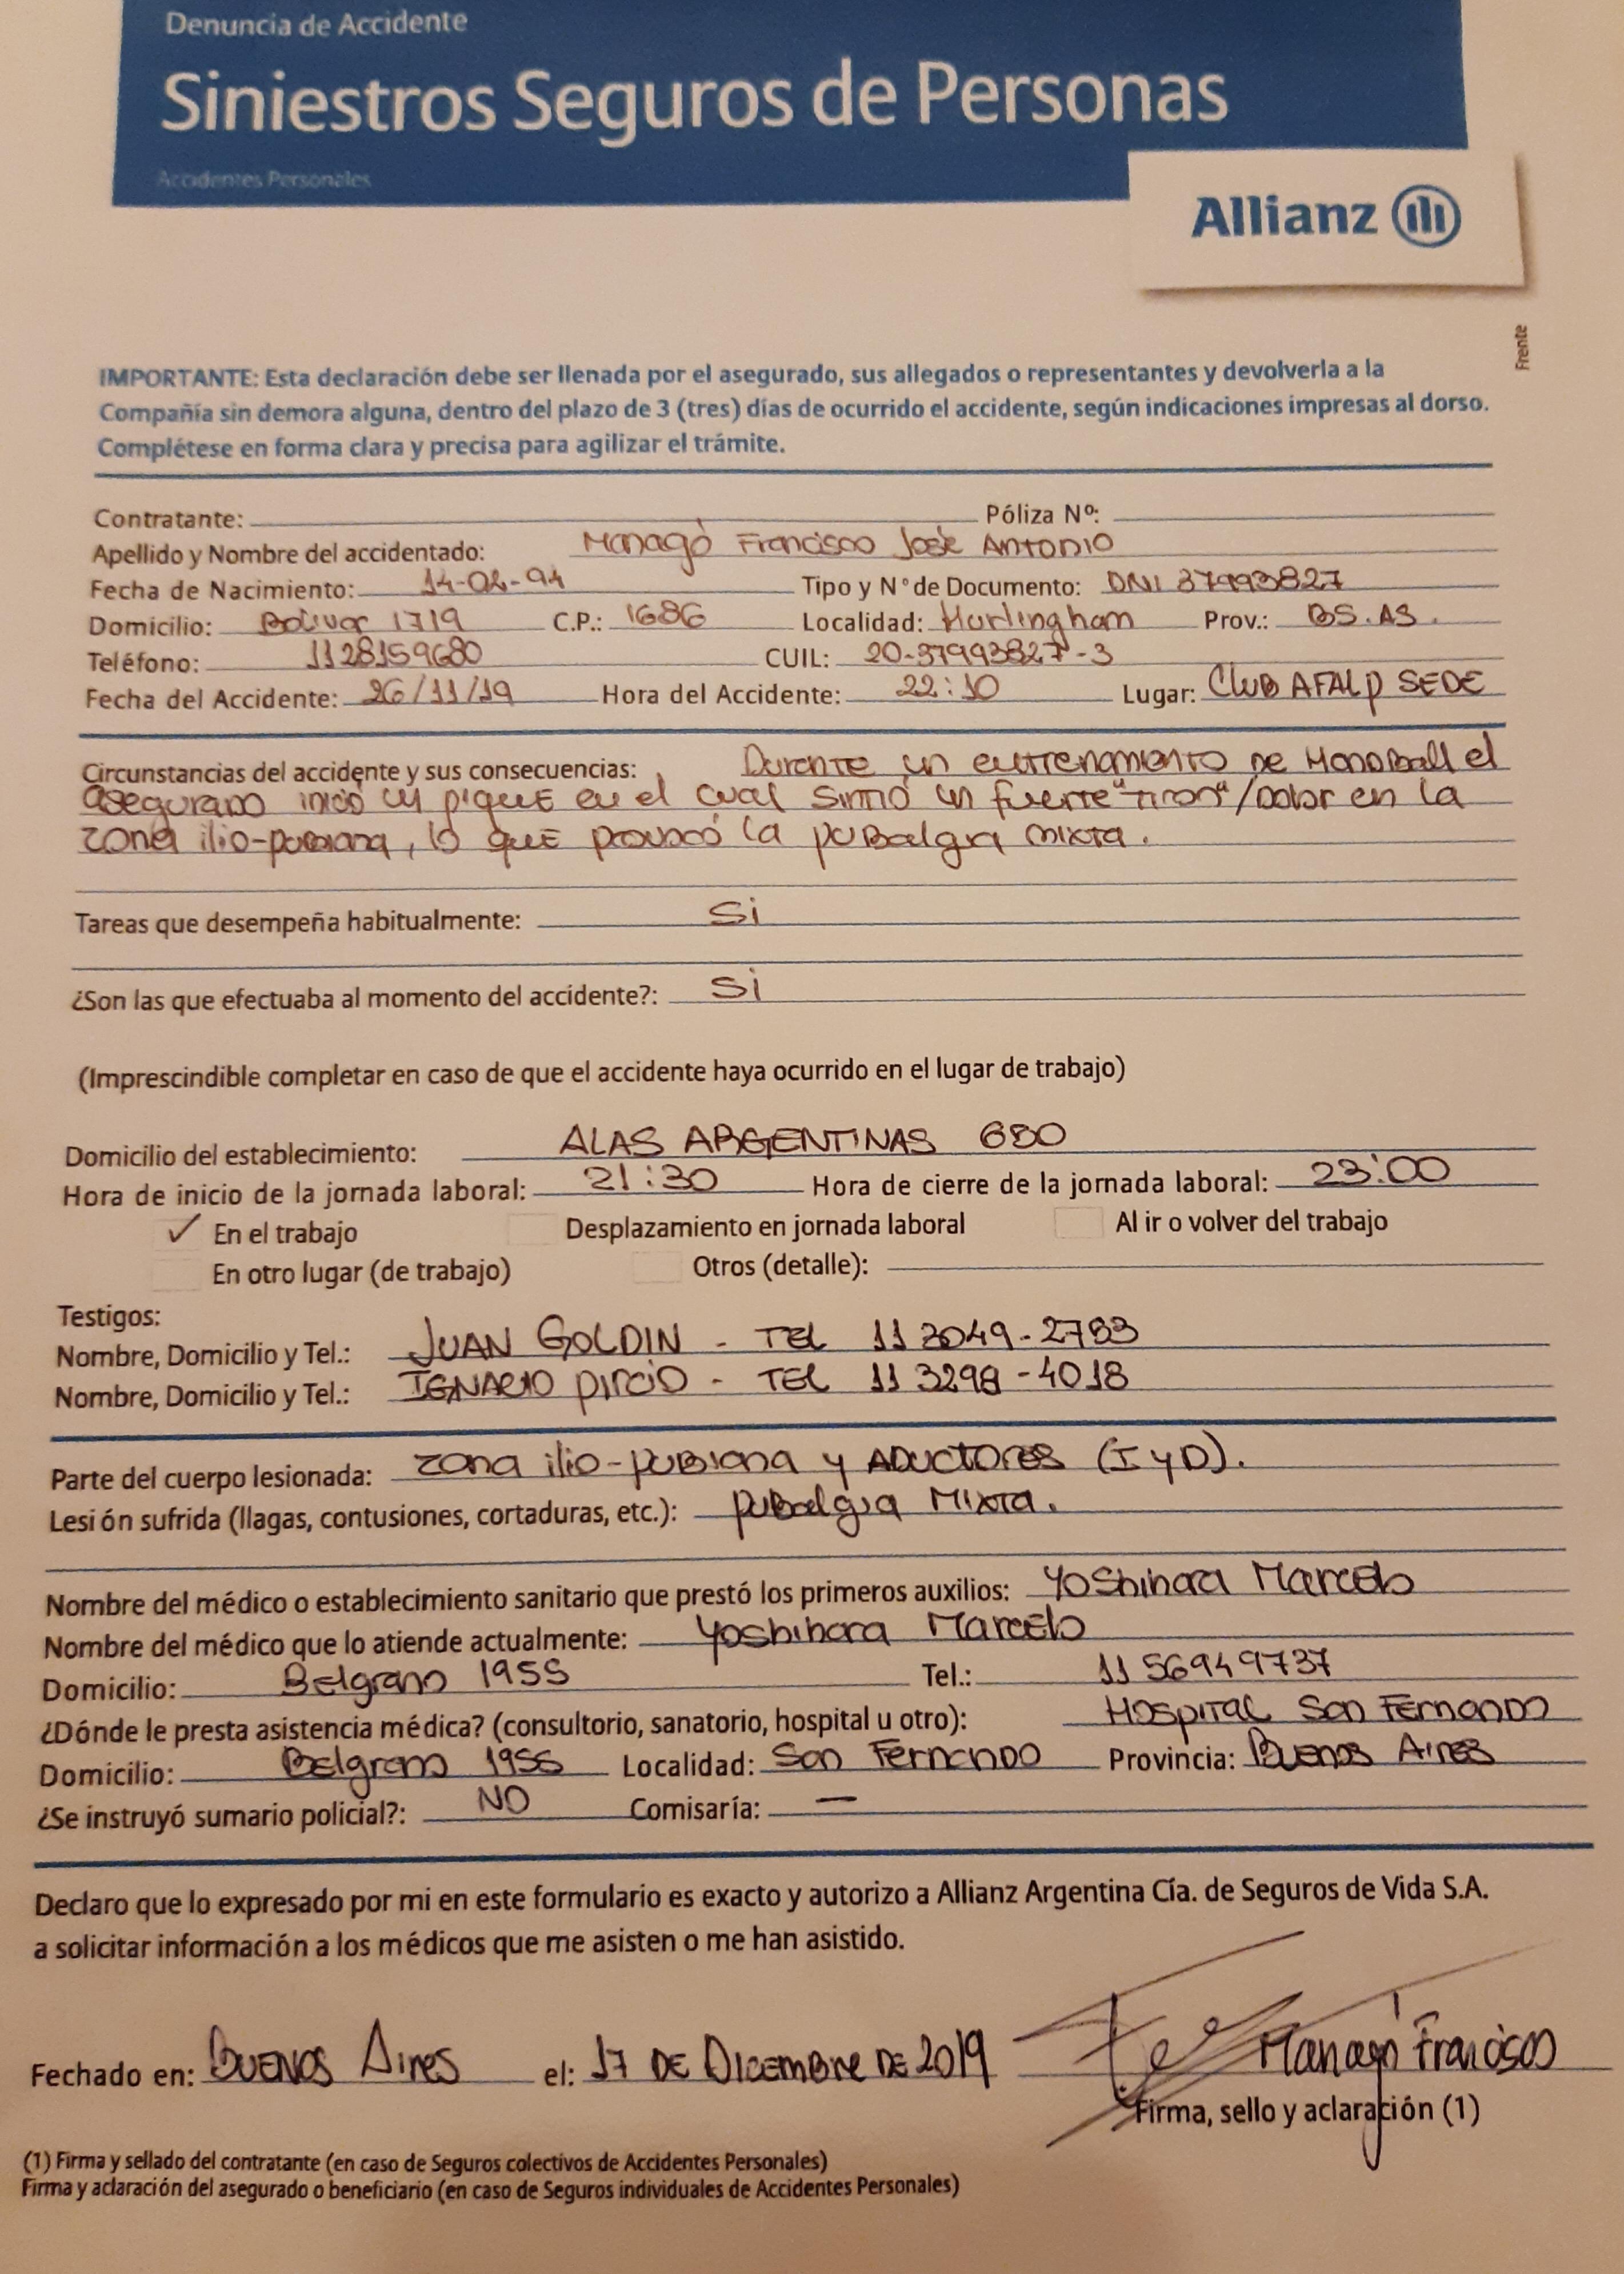 Denuncia de Accidente
Siniestros Seguros de Personas
Accidentes Personales
Allianz
Frente
IMPORTANTE: Esta declaración debe ser llenada por el asegurado, sus allegados o representantes y devolverla a la
Compañía sin demora alguna, dentro del plazo de 3 (tres) días de ocurrido el accidente, según indicaciones impresas al dorso.
Complétese en forma clara y precisa para agilizar el trámite.
Contratante: Póliza Nº:
Apellido y Nombre del accidentado: Managó Francisco José Antonio
Fecha de Nacimiento: 14-02-94 Tipo y Nº de Documento: DNI 37993827
Domicilio: Bolivar 1719 C.P.: 1686 Localidad: Hurlingham Prov.: BS.AS.
Teléfono: 1128159680 CUIL: 20-37993827-3
Fecha del Accidente: 26/11/19 Hora del Accidente: 22:10 Lugar: Club AFALP SEDE
Circunstancias del accidente y sus consecuencias: Durante un entrenamiento de Handball el
asegurado inició un pique en el cual sintió un fuerte "tiron"/Dolor en la
zona ilio-pubiana, lo que provocó la pubalgia mixta.
Tareas que desempeña habitualmente: Si
¿Son las que efectuaba al momento del accidente?: Si
(Imprescindible completar en caso de que el accidente haya ocurrido en el lugar de trabajo)
Domicilio del establecimiento: ALAS ARGENTINAS 680
Hora de inicio de la jornada laboral: 21:30 Hora de cierre de la jornada laboral: 23:00
✓ En el trabajo Desplazamiento en jornada laboral Al ir o volver del trabajo
En otro lugar (de trabajo) Otros (detalle):
Testigos:
Nombre, Domicilio y Tel.: JUAN GOLDIN - TEL 11 3049-2733
Nombre, Domicilio y Tel.: IGNACIO - TEL 11 3298-4018
Parte del cuerpo lesionada: zona ilio-pubiana y ADUCTORES (I y D).
Lesión sufrida (llagas, contusiones, cortaduras, etc.): pubalgia Mixta.
Nombre del médico o establecimiento sanitario que prestó los primeros auxilios: Yoshihara Marcelo
Nombre del médico que lo atiende actualmente: Yoshihara Marcelo
Domicilio: Belgrano 1955 Tel.: 11 56949737
¿Dónde le presta asistencia médica? (consultorio, sanatorio, hospital u otro): HOSPITAL San Fernando
Domicilio: Belgrano 1955 Localidad: San Fernando Provincia: Buenos Aires
¿Se instruyó sumario policial?: NO Comisaría: —
Declaro que lo expresado por mi en este formulario es exacto y autorizo a Allianz Argentina Cía. de Seguros de Vida S.A.
a solicitar información a los médicos que me asisten o me han asistido.
Fechado en: Buenos Aires el: 17 DE Diciembre DE 2019 Managó Francisco
Firma, sello y aclaración (1)
(1) Firma y sellado del contratante (en caso de Seguros colectivos de Accidentes Personales)
Firma y aclaración del asegurado o beneficiario (en caso de Seguros individuales de Accidentes Personales)